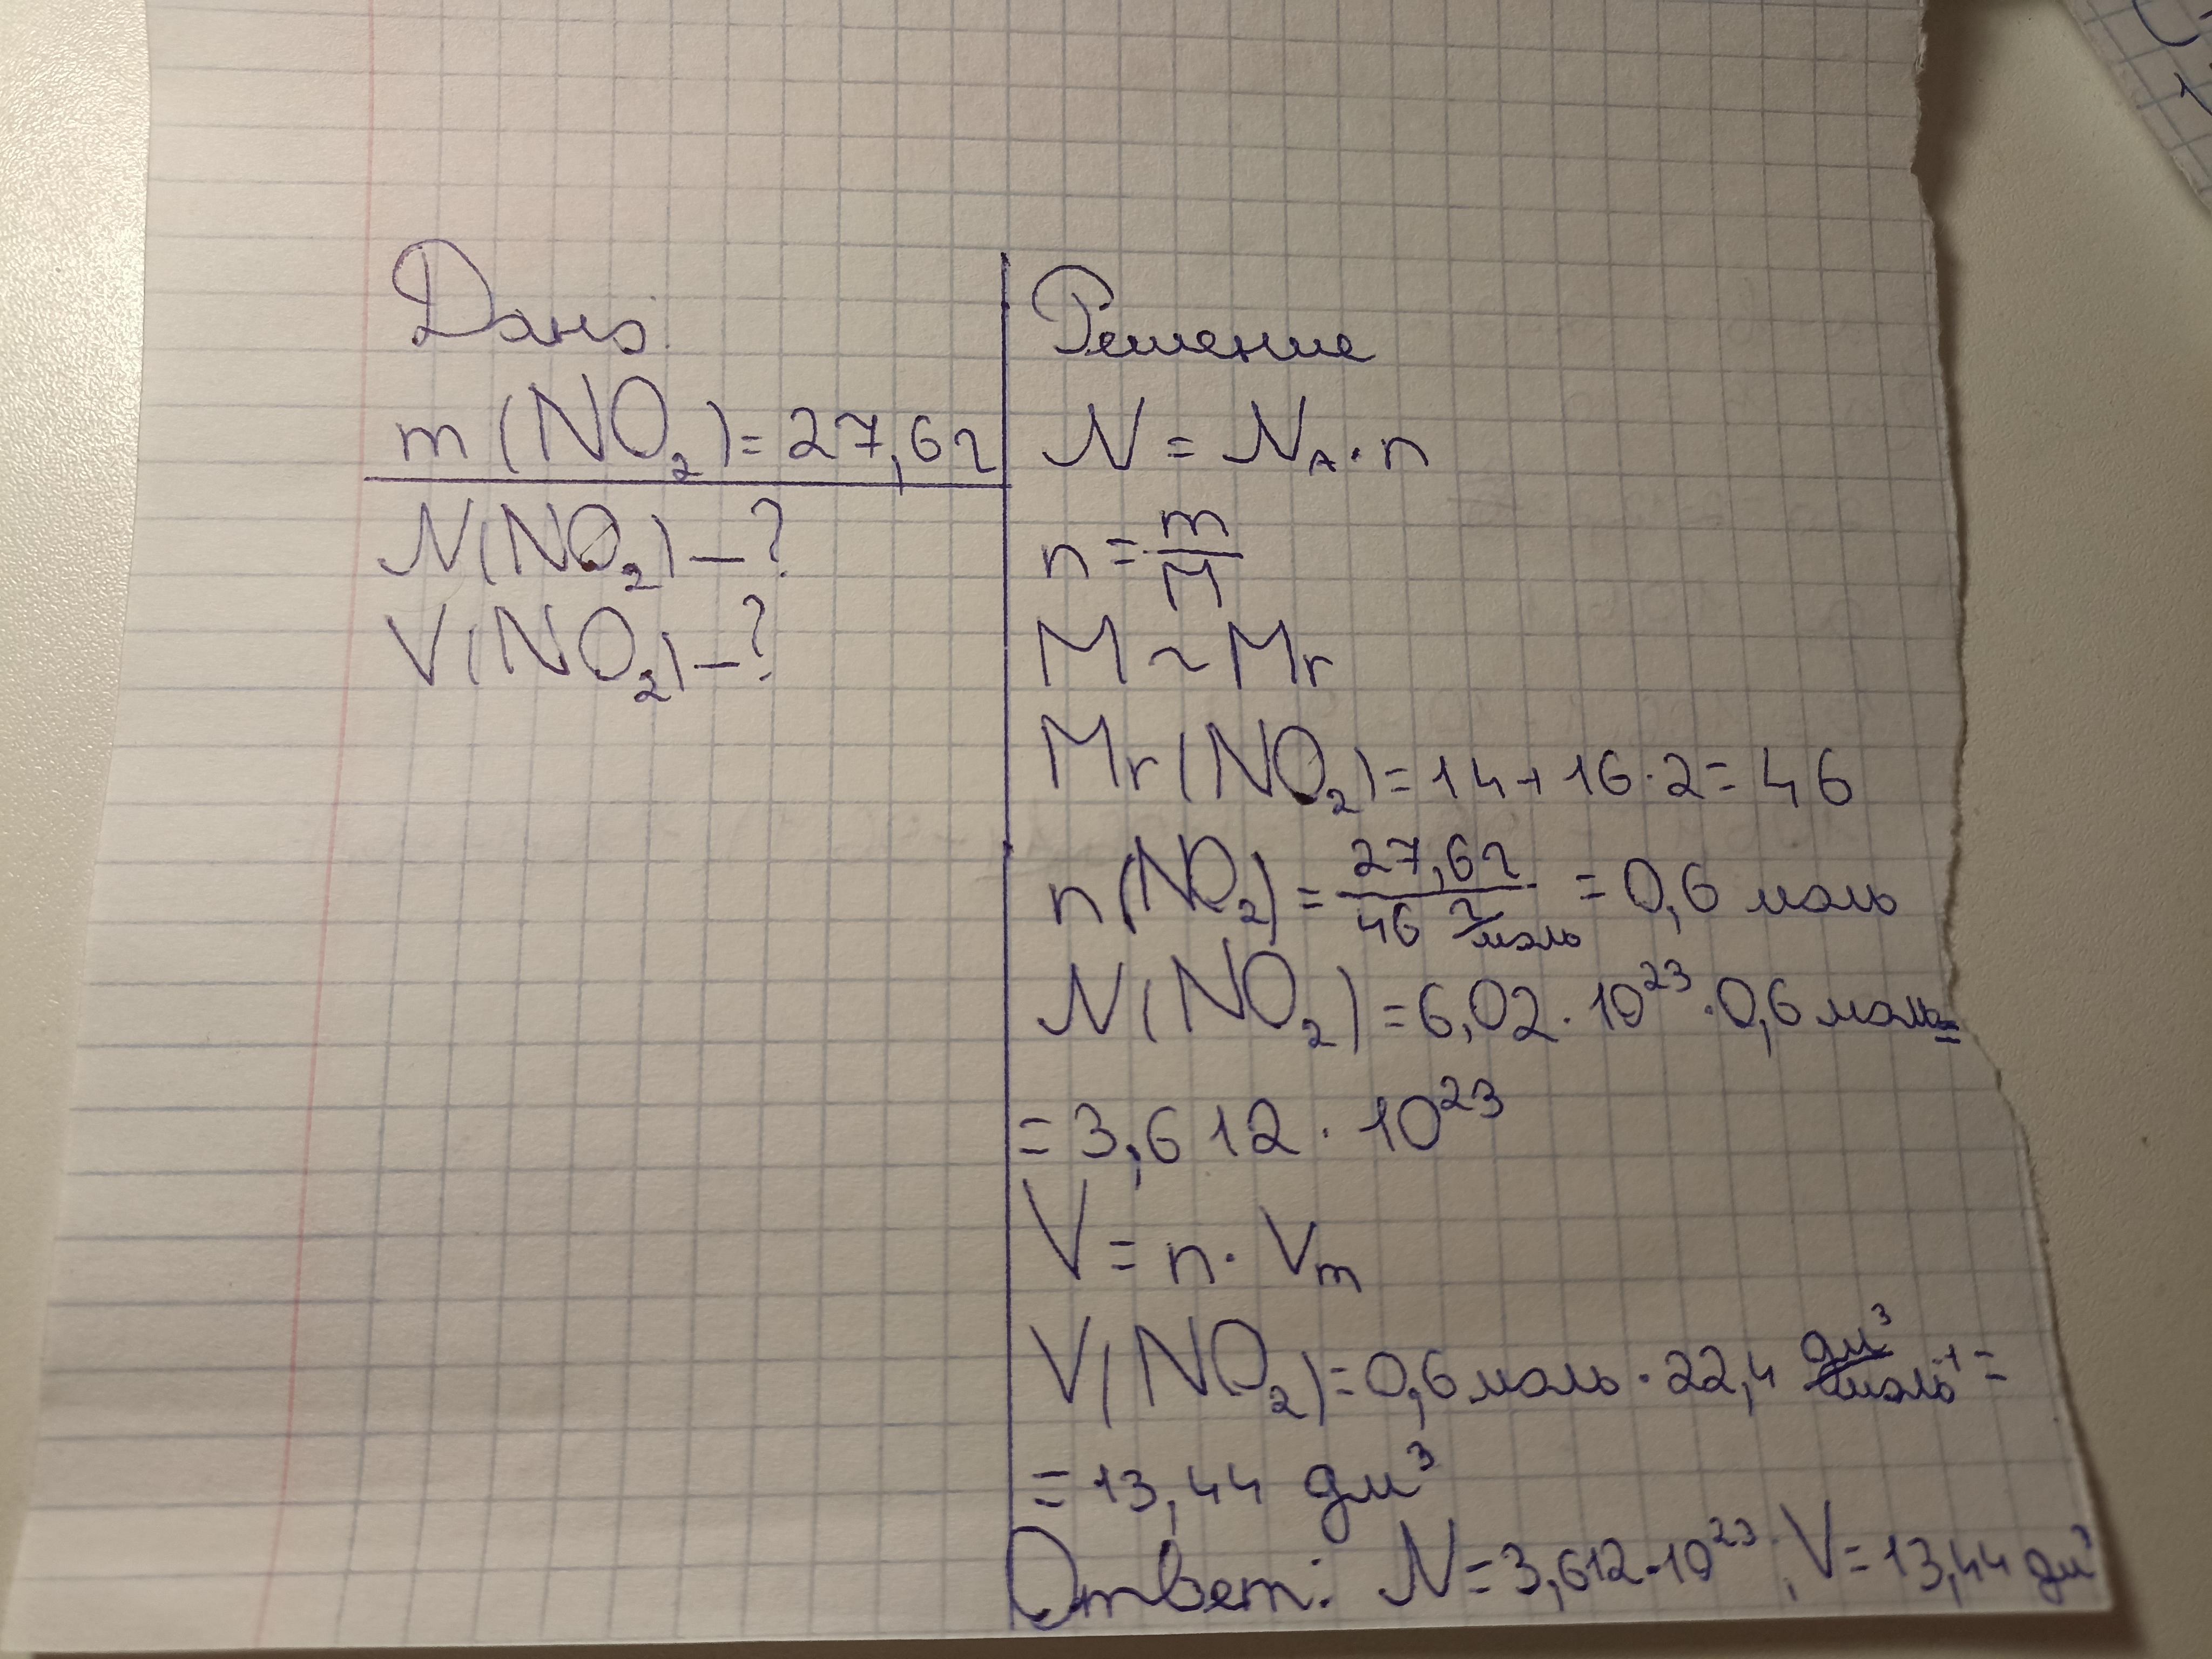 Дано:
m(NO₂)=27,6г
N(NO₂)–?
V(NO₂)–?
Решение
N = Nₐ·n
n = m/M
M ~ Mr
Mr(NO₂)=14+16·2=46
n(NO₂)= 27,6г/46 г/моль = 0,6 моль
N(NO₂)=6,02·10²³·0,6 моль=
=3,612·10²³
V = n·Vm
V(NO₂)=0,6 моль·22,4 дм³/моль⁻¹=
=13,44 дм³
Ответ: N=3,612·10²³; V=13,44 дм³